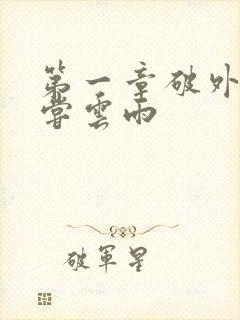 第一章破外
嘗雲雨
破軍星